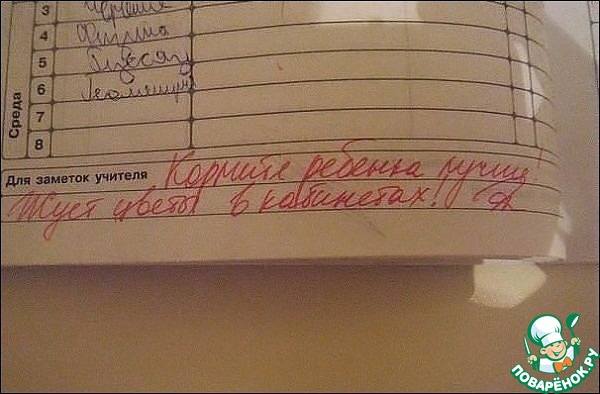 3 Черчение
4 Физика
5 Русск яз
6 Геометрия
7
8
Среда
Для заметок учителя Кормите ребенка лучше!
Жует цветы в кабинетах!
ПОВАРЁНОК.РУ